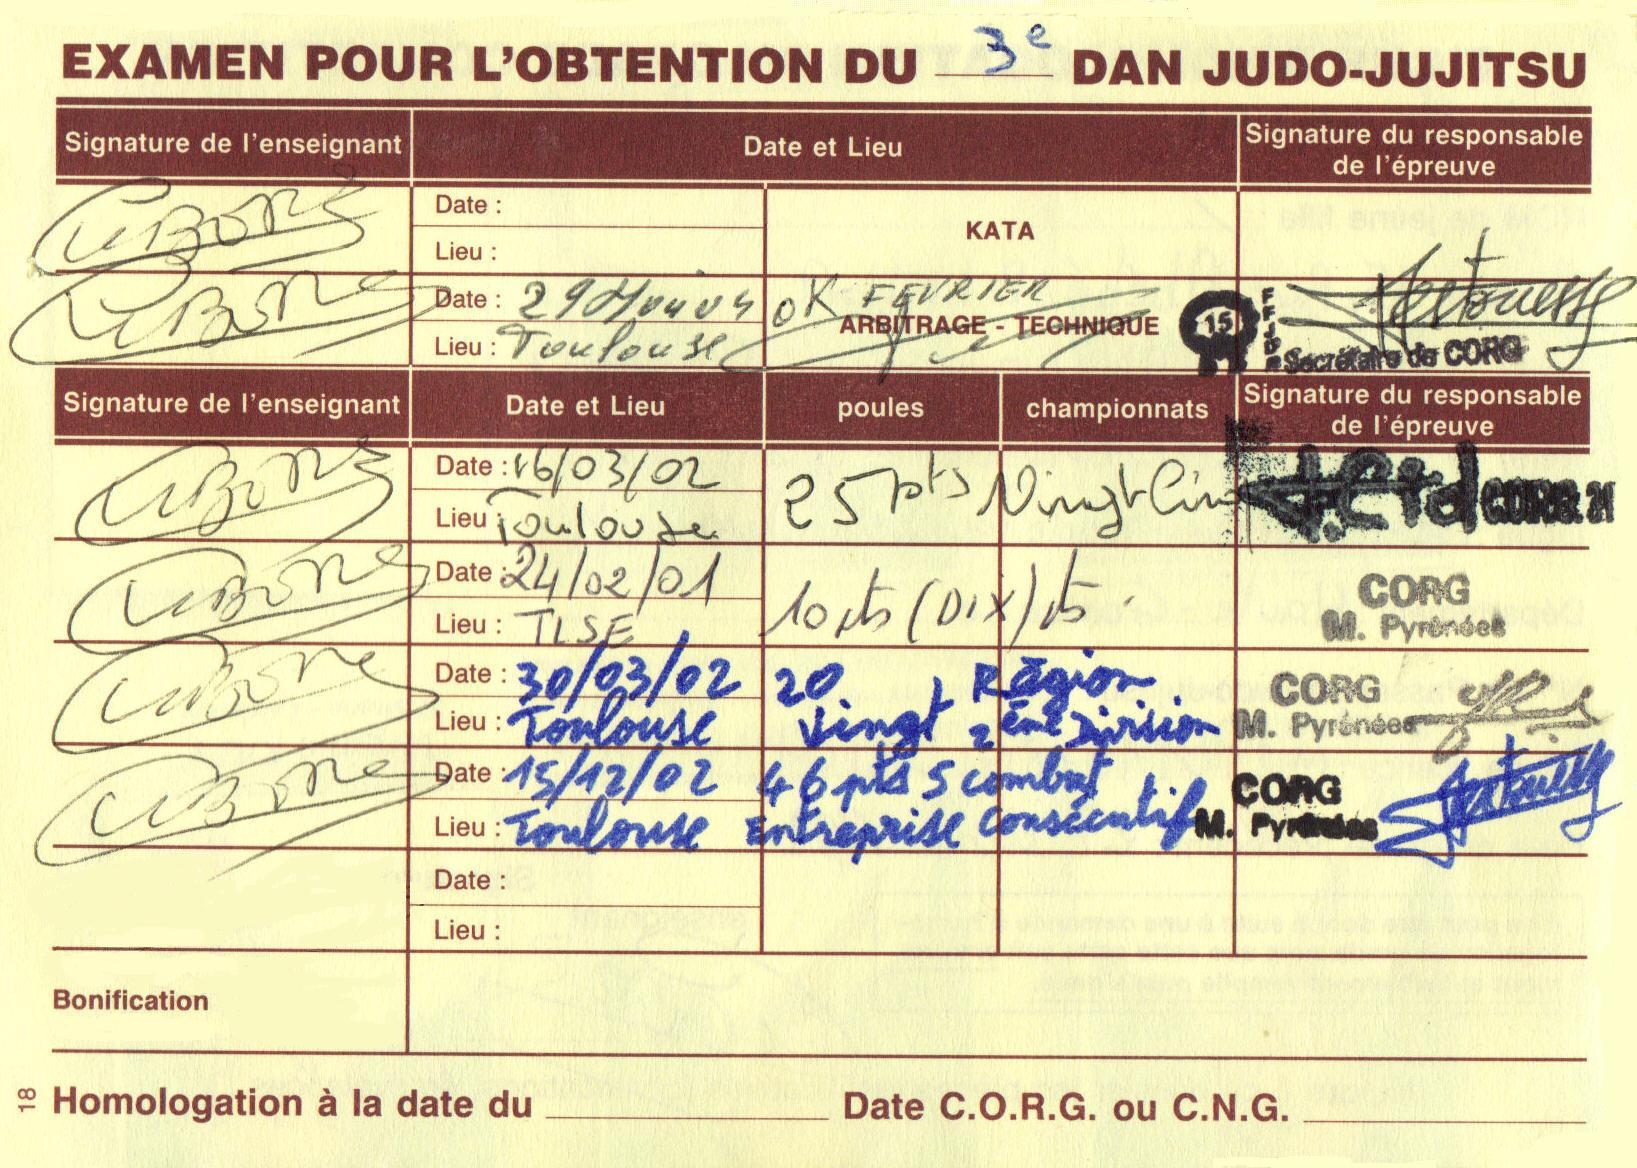 EXAMEN POUR L'OBTENTION DU 3e DAN JUDO-JUJITSU
Signature de l'enseignant
Date et Lieu
Signature du responsable
de l'épreuve
Date :
Lieu :
KATA
Date :
OK FEVRIER
Lieu : Toulouse
ARBITRAGE - TECHNIQUE
15
FFJDA
Secrétaire de CORG
Signature de l'enseignant
Date et Lieu
poules
championnats
Signature du responsable
de l'épreuve
Date : 16/03/02
Lieu : Toulouse
25 pts Vingt Cinq
CORG
Date : 24/02/01
Lieu : TLSE
10 pts (Dix) pts.
CORG
M. Pyrénées
Date : 30/03/02
Lieu : Toulouse
20
Vingt
Région
2ème Division
CORG
M. Pyrénées
Date : 15/12/02
Lieu : Toulouse
46 pts 5 combat
Entreprise Consécutif
CORG
M. Pyrénées
Date :
Lieu :
Bonification
Homologation à la date du
Date C.O.R.G. ou C.N.G.
18